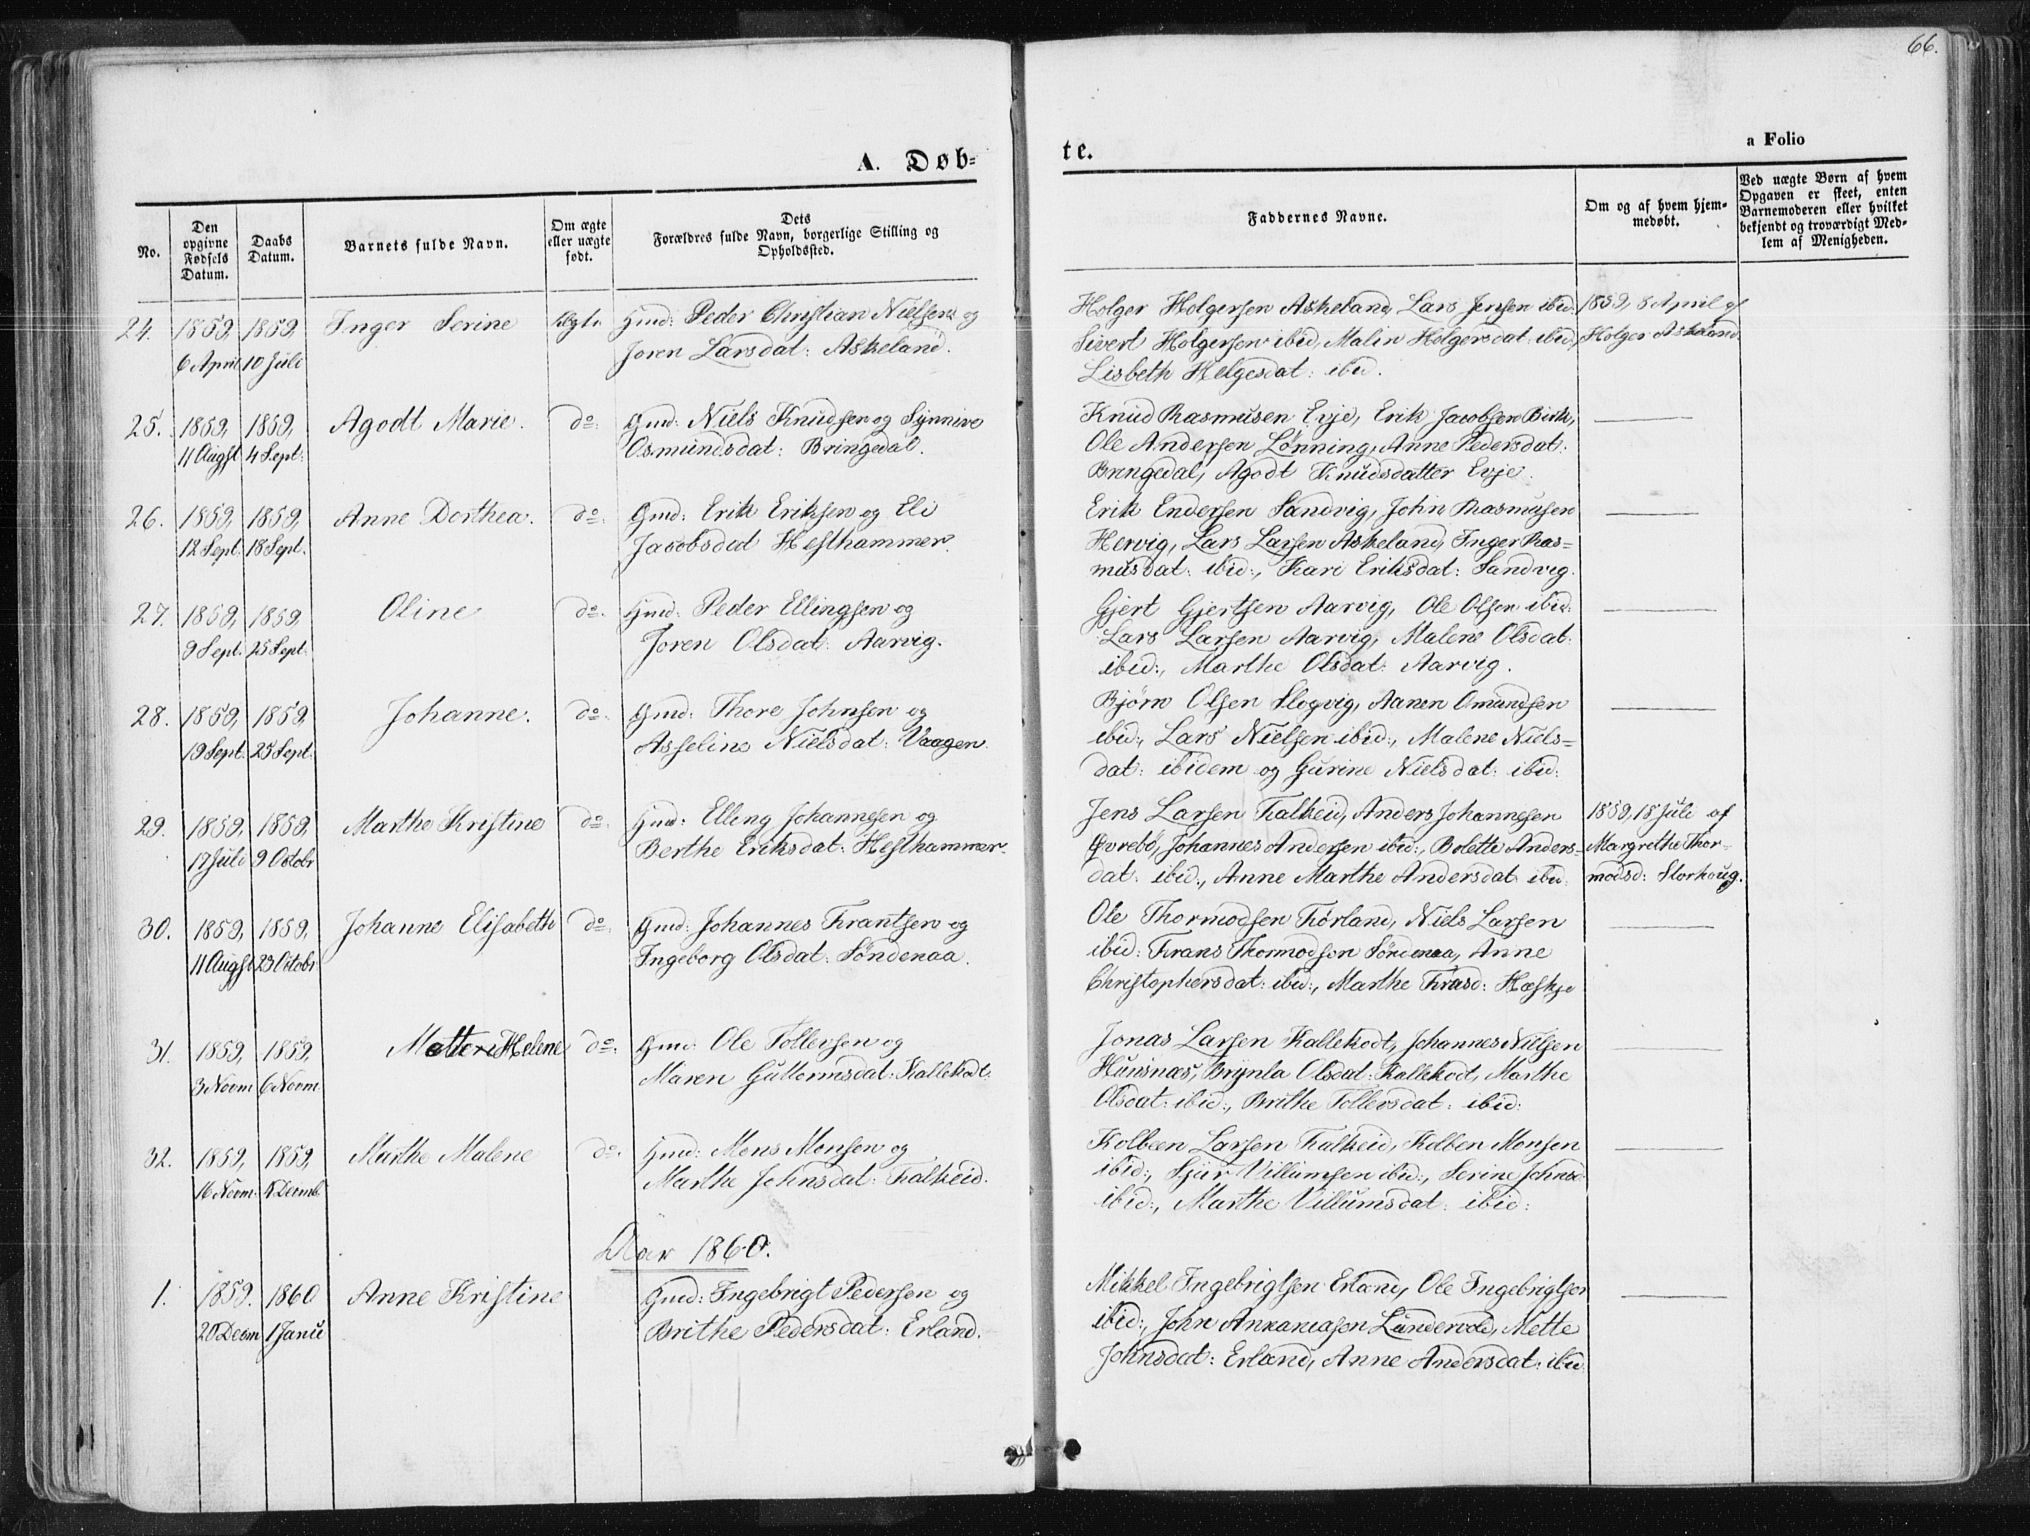 66.
A. Døb-
te.
a Folio
No.
Den opgivne Fødsels Datum.
Daabs Datum.
Barnets fulde Navn.
Om ægte eller uægte født.
Dets Forældres fulde Navn, borgerlige Stilling og Opholdssted.
Faddernes Navne.
Om og af hvem hjemmedøbt.
Ved uægte Børn af hvem Opgaven er skeet, enten Barnemoderen eller hvilket bekjendt og troværdigt Medlem af Menigheden.
24. 1859, 1859, Inger Serine Ægte Gmd: Peder Christian Nielsen og
6 April 10 Juli Joren Larsdat: Askeland.
Holger Holgersen Askeland, Lars Jensen ibid: 1859, 8 April af
Sivert Holgersen ibid, Malin Holgersdat ibid, Holger Askeland
Lisbeth Helgesdat: ibid.
25. 1859, 1859, Agodt Marie. do: Gmd: Niels Knudsen og Synnive
11 Augst 4 Sept: Osmundsdat: Bringedal.
Knud Rasmusen Evje, Erik Jacobsen Birk,
Ole Andersen Lønning, Anne Pedersdat:
Bringedal, Agodt Knudsdatter Evje.
26. 1859, 1859, Anne Dorthea. do: Gmd: Erik Eriksen og Eli
12 Sept. 18 Sept. Jacobsdat Hesthammer.
Erik Endersen Sandvig, John Rasmusen
Hervig, Lars Larsen Askeland, Inger Ras=
musdat: ibid:, Kari Eriksdat: Sandvig.
27. 1859, 1859, Oline do. Gmd: Peder Ellingsen og
9 Sept. 25 Sept. Joren Olsdat: Aarvig.
Gjert Gjertsen Aarvig, Ole Olsen ibid:
Lars Larsen Aarvig, Malene Olsdat:
ibid:, Marthe Olsdat: Aarvig.
28. 1859, 1859. Johanne. do. Gmd: Thore Johnsen og
19 Sept. 25 Sept. Asseline Nielsdat: Vaagen.
Bjørn Olsen Slogvig, Aanen Amundsen
ibid:, Lars Nielsen ibid:, Malene Niels=
dat: ibidem og Gurine Nielsdat: ibid:
29. 1859, 1859, Marthe Kristine do: Gmd: Elling Johannesen og
17 Juli 9 Octobr Berthe Eriksdat: Hesthammer.
Jens Larsen Falkeid, Anders Johannesen 1859, 18 Juli af
Øvrebö, Johannes Andersen ibid:, Bolette Anders= Margrethe Thor-
dat: ibid:, Anne Marthe Andersdat ibid. modsd: Storhoug.
30. 1859, 1859, Johanne Elisabeth do: Gmd: Johannes Frantsen og
11 Augst 23 Octobr Ingeborg Olsdat: Søndenaa.
Ole Thormodsen Førland, Niels Larsen
ibid: Frans Thormodsen Søndenaa, Anne
Christophersdat: ibid:, Marthe Fransd:
31. 1859, 1859, Helene do: Gmd: Ole Tollevsen og
3 Novm 6 Novm. Maren Guttormsdat: Kallekodt.
Jonas Larsen Kallekodt, Johannes Nielsen
Huusnæs, Brynla Olsdat: Kallekodt, Marthe
Olsdat: ibid:, Brithe Tollevsdat: ibid:
32. 1859, 1859, Marthe Malene do. Gmd: Mons Monsen og
16 Novm. Decmb. Marthe Johnsdat: Falkeid.
Kolbeen Larsen Falkeid, Kolben Monsen
ibid:, Sjur Villumsen ibid:, Serine Johnsd:
ibid:, Marthe Villumsdat: ibid:
Aar 1860.
1. 1859. 1860 Anne Kristine Gmd: Ingebrigt Pedersen og
20 Decm 1 Janu Brithe Pedersdat: Erland.
Mikkel Ingebrigtsen Erland, Ole Ingebrigtsen
ibid:, John Annaniasen Mette
Johnsdat: Erland, Anne Andersdat: ibid